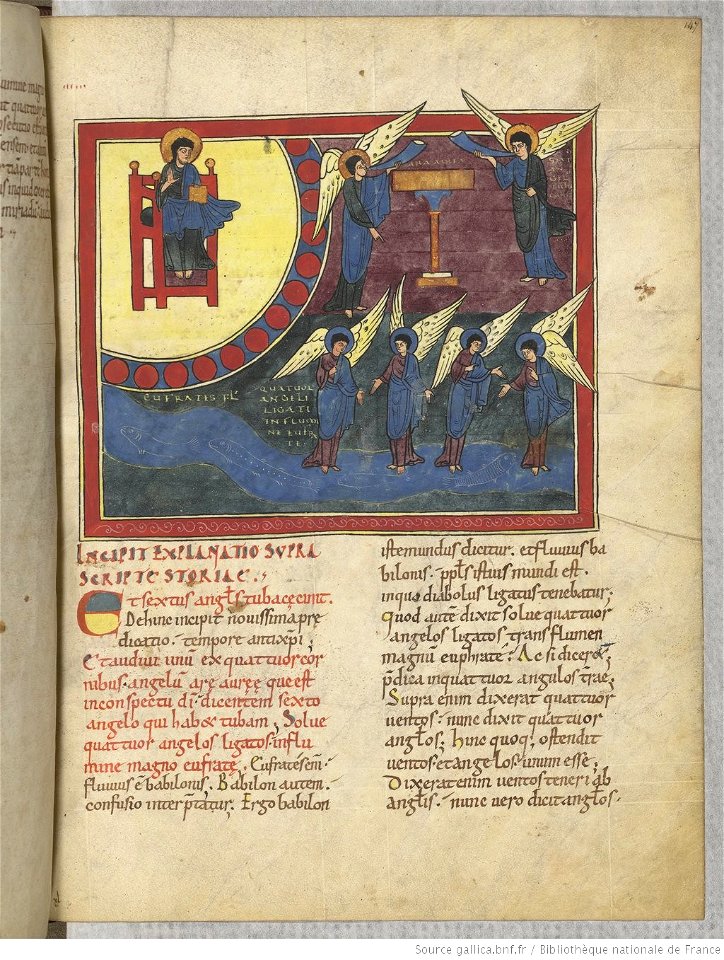 147
ARA AUREA
EUFRATES FL
QUATUOR
ANGELI
LIGATI
IN FLUMI
NE EUFRA
TE.
INCIPIT EXPLANATIO SUPRA
SCRIPTE STORIAE.
Et sextus angls tuba cecinit.
Dehinc incipit novissima pre
dicatio. tempore antixpi;
Et audivi unu ex quattuor cor
nibus. angelu arę aureę que est
in conspectu di. dicentem sexto
angelo qui hab& tubam; Solve
quattuor angelos ligatos. in flu
mine magno eufratę. Eufrates em.
fluvius e babilonis. Babilon autem.
confusio interptatur. Ergo babilon
iste mundus dicitur. et fluvius ba
bilonis. ppls istius mundi est.
in quo diabolus ligatus tenebatur;
quod aute dixit solve quattuor
angelos ligatos trans flumen
magnu euphrate? Ac si diceret
pdica in quattuor angulos trae;
Supra enim dixerat quattuor
ventos. nunc dixit quattuor
anglos; hinc quoq; ostendit
ventos et angelos. unum esse;
Dixerat enim ventos teneri ab
anglis. nunc vero dicit anglos.
Source gallica.bnf.fr / Bibliothèque nationale de France